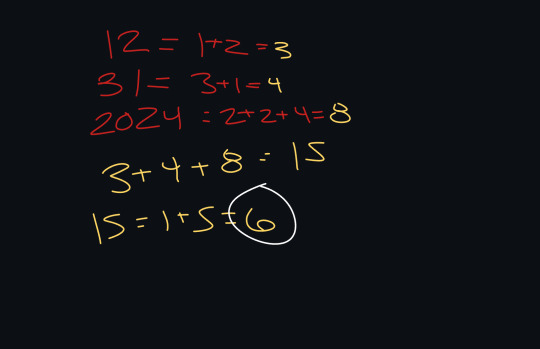 12 = 1+2 = 3
31 = 3+1 = 4
2024 = 2+2+4 = 8
3+4+8 = 15
15 = 1+5 = 6